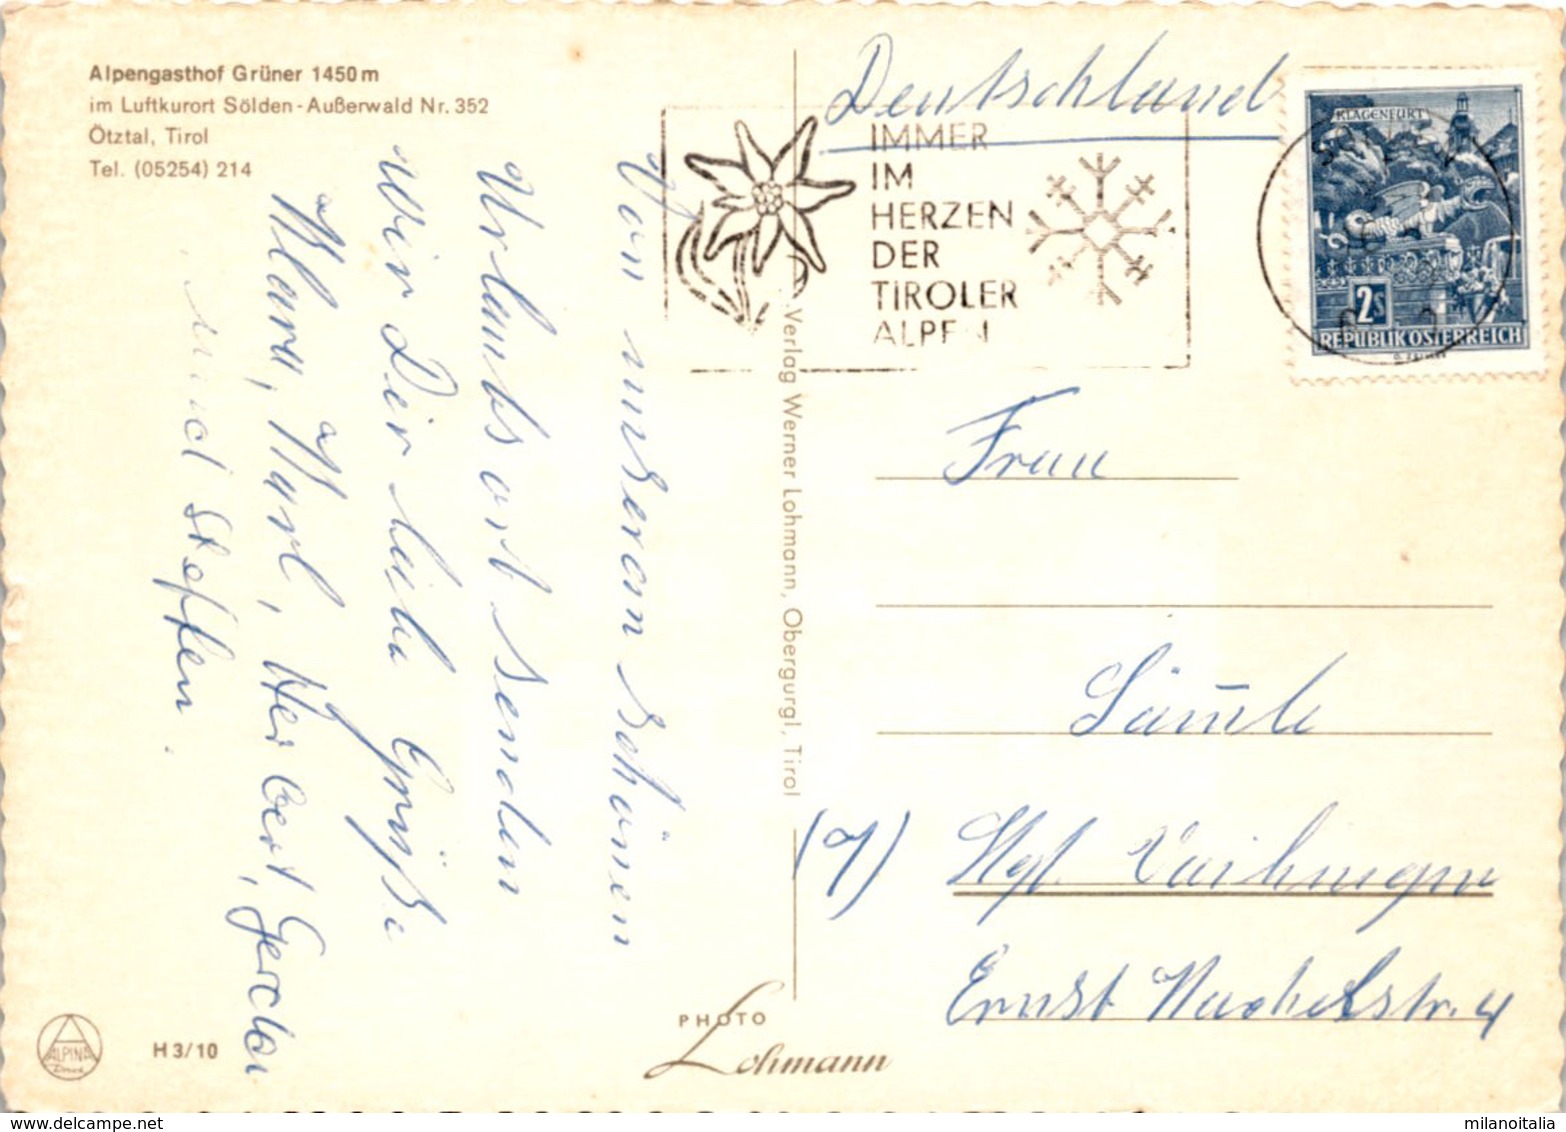 Alpengasthof Grüner 1450 m
im Luftkurort Sölden-Außerwald Nr. 352
Ötztal, Tirol
Tel. (05254) 214
Von unserem schönen
Urlaubsort senden
wir Dir liebe Grüße
Klara, Karl, Herbert, Gerda
und Steffen.
Verlag Werner Lohmann, Obergurgl, Tirol
Deutschland
IMMER
IM
HERZEN
DER
TIROLER
ALPEN
KLAGENFURT
2S
REPUBLIK ÖSTERREICH
Frau
Säule
(7) Stgt. Vaihingen
Ernst Str. 4
ALPINA
Druck
H 3/10
PHOTO
Lohmann
www.delcampe.net
milanoitalia